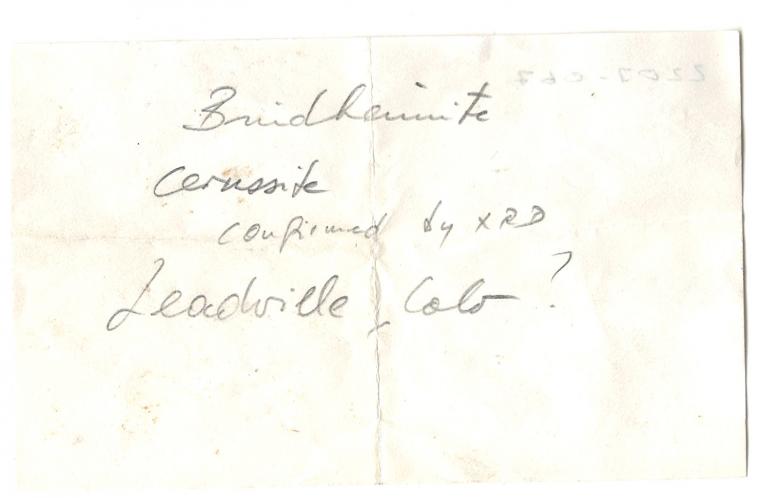 Bindheimite
Cerussite
confirmed by XRD
Leadville, Colo ?